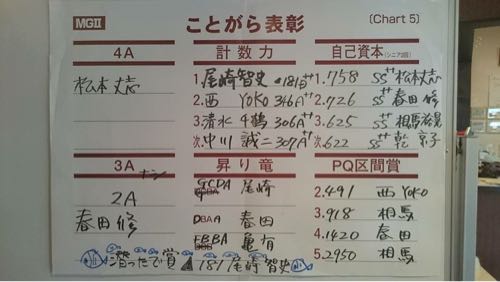 MGII ことがら表彰 〔Chart 5〕
4A 計数力 自己資本(シニア2期)
松本丈志 1.尾崎智史 181A++ 1.758 SS++ 松本丈志
2.西 YOKO 346A++ 2.726 SS++ 春田 修
3.清水 千鶴 306A++ 3.625 SS++ 相馬裕晃
次.中川 誠二 307A++ 次.622 SS++ 乾 京子
3A ナシ 昇り竜 PQ区間賞
2A GCDA 尾崎 2.491 西 YOKO
春田 修 DBAA 春田 3.918 相馬
FBBA 亀有 4.1420 春田
潜ったで賞 ▲181 尾崎智史 5.2950 相馬